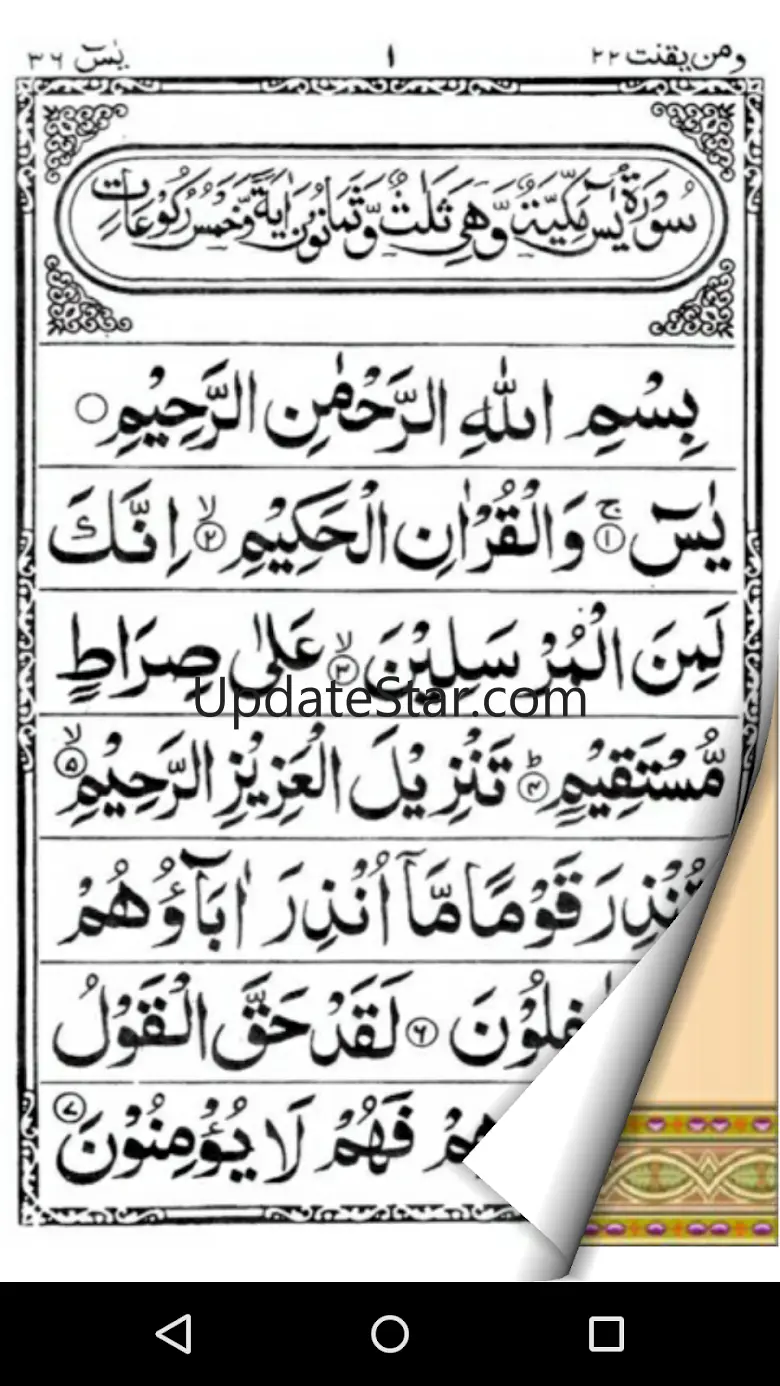 ومن يقنت ٢٢ ١ يٰسٓ ٣٦
سُوْرَةُ يٰسٓ مَكِّيَّةٌ وَّهِيَ ثَلٰثٌ وَّثَمَانُوْنَ اٰيَةً وَّخَمْسُ رُكُوْعَاتٍ
بِسْمِ اللّٰهِ الرَّحْمٰنِ الرَّحِيْمِ
يٰسٓ ۚ‏﴿۱﴾ وَالْقُرْاٰنِ الْحَكِيْمِ ۙ‏﴿۲﴾ اِنَّكَ
لَمِنَ الْمُرْسَلِيْنَ ۙ‏﴿۳﴾ عَلٰى صِرَاطٍ
UpdateStar.com
مُّسْتَقِيْمٍ ؕ‏﴿۴﴾ تَنْزِيْلَ الْعَزِيْزِ الرَّحِيْمِ ۙ‏﴿۵﴾
قَوْمًا مَّاۤ اُنْذِرَ اٰبَآؤُهُمْ
﴿۶﴾ لَقَدْ حَقَّ الْقَوْلُ
فَهُمْ لَا يُؤْمِنُوْنَ ﴿۷﴾